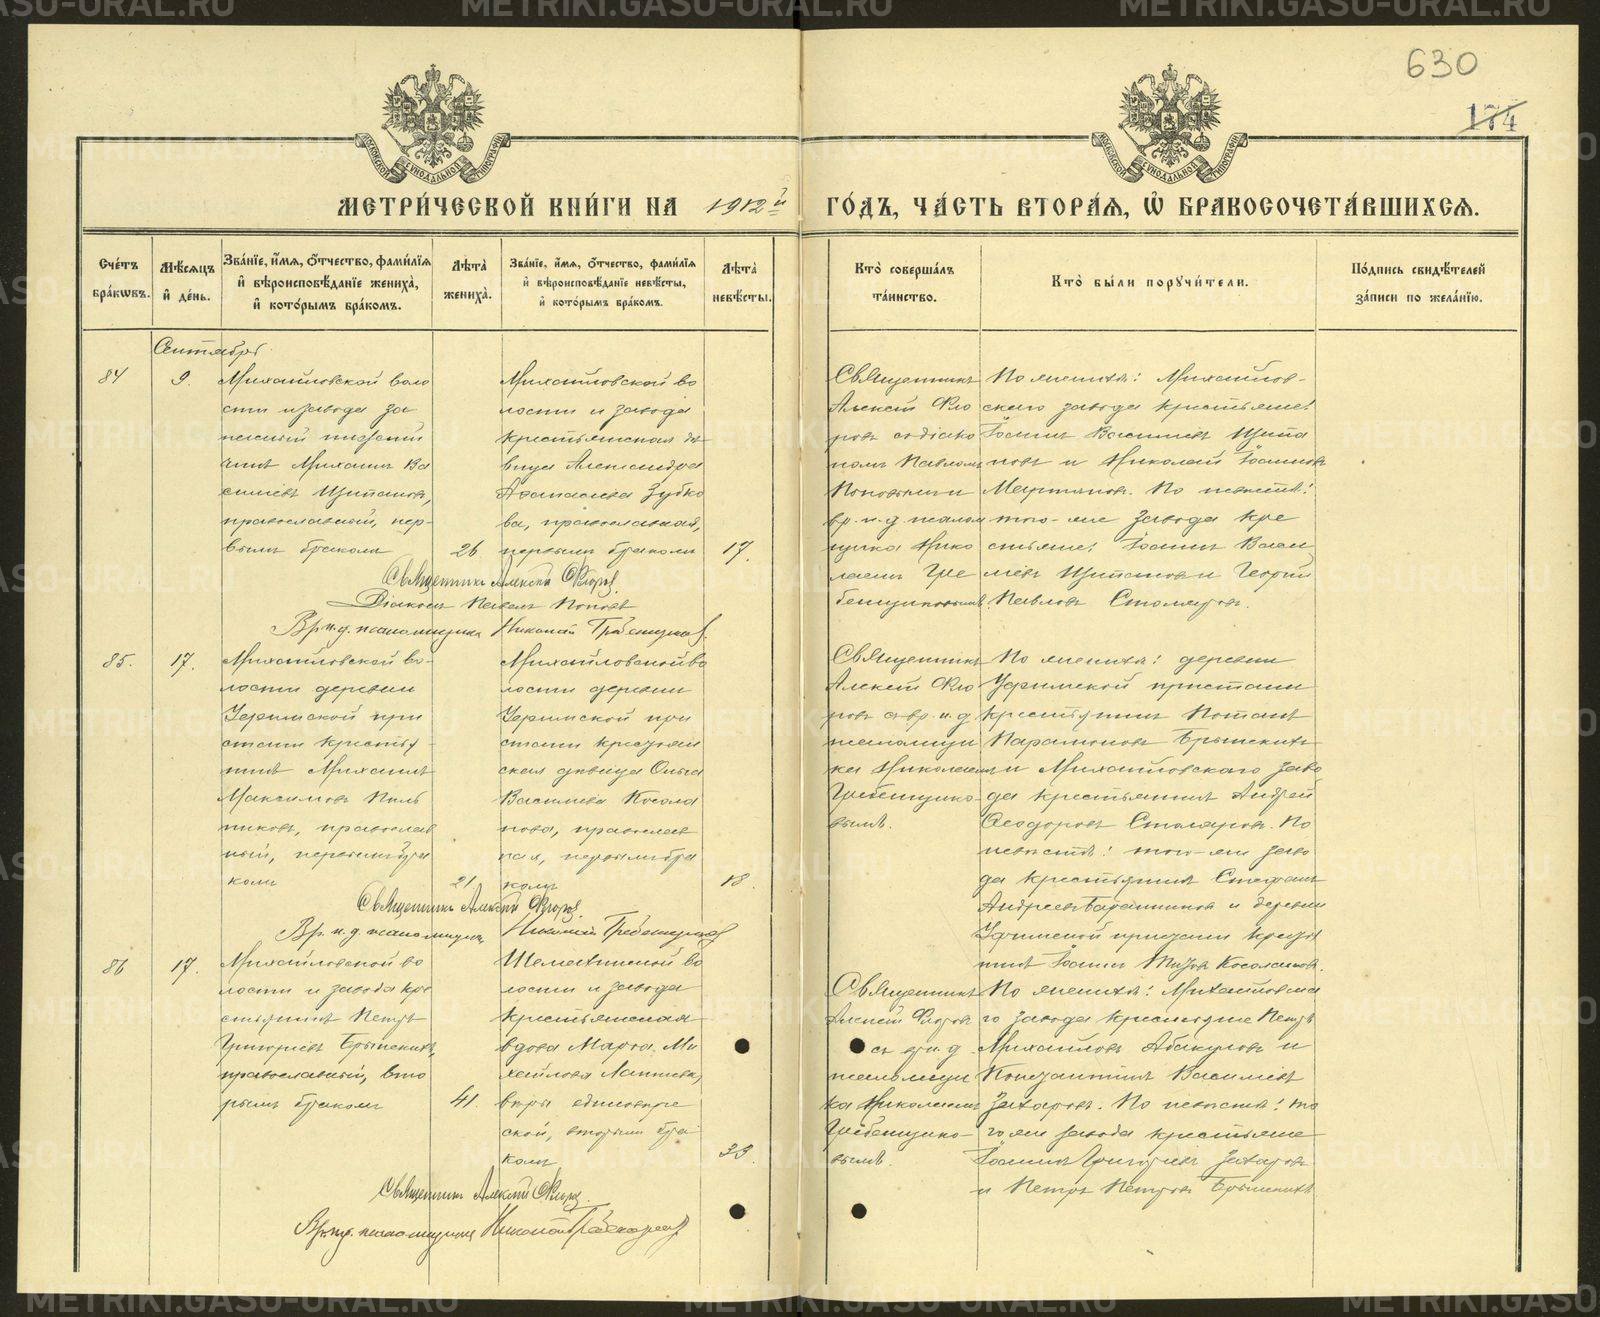 630
174
МЕТРИ́ЧЕСКОЙ КНИ́ГИ НА 1912й ГО́ДЪ, ЧА́СТЬ ВТОРА́Я, Ѿ БРАКОСОЧЕТА́ВШИХСЯ.
Сче́тъ бра́кωвъ.
Мѣ́сяцъ и҆ де́нь.
Зва́нїе, и҆́мя, ѻ҆́тчество, фами́лїя и҆ вѣроисповѣ́данїе жениха̀, и҆ кото́рымъ бра́комъ.
Лѣ́та жениха̀.
Зва́нїе, и҆́мя, ѻ҆́тчество, фами́лїя и҆ вѣроисповѣ́данїе невѣ́сты, и҆ кото́рымъ бра́комъ.
Лѣ́та невѣ́сты.
Кто̀ соверша́лъ та́инство.
Кто̀ бы́ли порꙋчи́тели.
По́дпись свидѣ́телей за́писи по жела́нїю.
Сентябрь
84
9.
Михайловской воло
сти и завода за
пасный
чинъ Михаилъ Ва
сильевъ Щипановъ,
православный, пер-
вымъ бракомъ
26
Михайловской во
лости и завода
крестьянская дѣ
вица Александра
Аѳанасіева Зубко
ва, православная,
первымъ бракомъ
17.
Священникъ
Алексѣй Фло
ровъ съ діако
номъ Павломъ
Поповымъ и
вр. и. д. псалом
щика Нико
лаемъ Гре
бенщиковымъ.
По женихѣ: Михайлов-
скаго завода крестьяне:
Іоаннъ Васильевъ Щипа
новъ и Николай Іоанновъ
Мартьяновъ. По невѣстѣ:
того-же завода кре
стьяне: Іоаннъ Васи
льевъ Щипановъ и Георгій
Павловъ Столяровъ.
Священникъ Алексѣй Флоровъ.
Діаконъ Павелъ Поповъ
Вр. и. д. псаломщика Николай Гребенщиковъ.
85.
17.
Михайловской во-
лости деревни
Уфимской при
стани крестья-
нинъ Михаилъ
Максимовъ Пиль
никовъ, православ
ный, первымъ бра
комъ
21.
Михайловской во
лости деревни
Уфимской при
стани крестьян
ская дѣвица Ольга
Васильева Косола
пова, православ
ная, первымъ бра
комъ
18.
Священникъ
Алексѣй Фло
ровъ съ вр. и. д
псаломщи
ка Николаемъ
Гребенщико-
вымъ.
По женихѣ: деревни
Уфимской пристани
крестьянинъ Потапъ
Парамоновъ Брыскихъ
и Михайловскаго заво
да крестьянинъ Андрей
Ѳеодоровъ Столяровъ. По
невѣстѣ: того-же заво
да крестьянинъ Стефанъ
Андреевъ Баранниковъ и деревни
Уфимской пристани кресть
нинъ Іоаннъ Косолаповъ.
Священникъ Алексѣй Флоровъ.
Вр. и. д. псаломщика Николай Гребенщиковъ
86
17.
Михайловской во
лости и завода кре
стьянинъ Петръ
Григорьевъ Брыскихъ,
православный, вто
рымъ бракомъ
41.
Шемахинской во
лости и завода
крестьянская
вдова Марѳа Ми
хайлова Лаптева,
вѣры единовѣрче
ской, вторымъ бра
комъ
33.
Священникъ
Алексѣй Флоровъ
съ вр. и. д
псаломщи
ка Николаемъ
Гребенщико-
вымъ.
По женихѣ: Михайловска
го завода крестьяне Петръ
Михайловъ Абакумовъ и
Константинъ Васильевъ
Захаровъ. По невѣстѣ: то
го же завода крестьяне
Іоаннъ Григорьевъ Захаровъ
и Петръ Петровъ Брыскихъ
Священникъ Алексѣй Флоровъ.
Вр. и. д. псаломщика Николай Гребенщиковъ